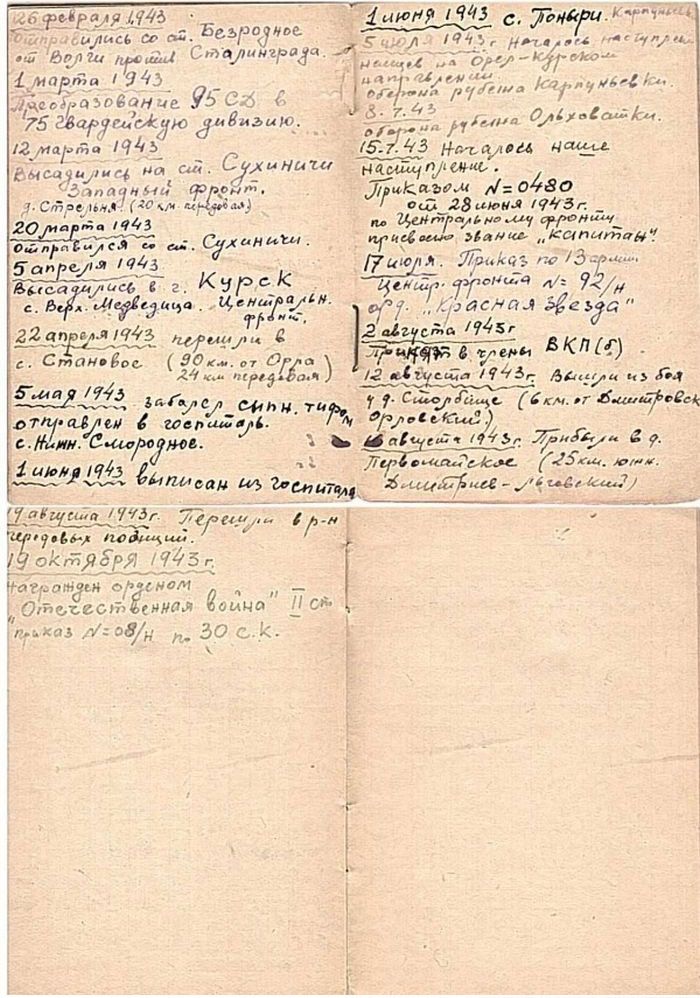 26 февраля 1943
отправились со ст. Безродное
от Волги против Сталинграда.
1 марта 1943
Преобразование 95 СД в
75 гвардейскую дивизию.
12 марта 1943
Высадились на ст. Сухиничи
Западный фронт.
д. Стрельня. (20 км. передовая)
20 марта 1943
отправился со ст. Сухиничи.
5 апреля 1943
Высадились в г. Курск
с. Верх. Медведица. Центральн.
фронт.
22 апреля 1943 перешли в
с. Становое (90 км. от Орла
24 км передовая)
5 мая 1943 заболел сыпн. тифом
отправлен в госпиталь.
с. Нижн. Смородное.
1 июня 1943 выписан из госпиталя
1 июня 1943 с. Поныри.
5 июля 1943 г. Началось наступлен
немцев на Орел-Курском
направлении.
оборона рубежа Карпуньевки.
8.7.43
оборона рубежа Ольховатки.
15.7.43 Началось наше
наступление.
Приказом N=0480
от 28 июня 1943 г.
по Центральному фронту
присвоено звание „Капитан".
17 июля. Приказ по 13 армии
Центр. фронта N= 92/н
орд. „Красная звезда"
2 августа 1943 г
в члены ВКП(б)
12 августа 1943 г. Вышли из боя
у д. Столбище (6 км. от Дмитровск
Орловский.)
августа 1943 г. Прибыли в д.
Первомайское (25 км. южн.
Дмитриев-Льговский)
августа 1943 г. Перешли в р-н
передовых позиций.
19 октября 1943 г.
Награжден орденом
"Отечественная война" II ст
приказ N=08/н по 30 с.к.